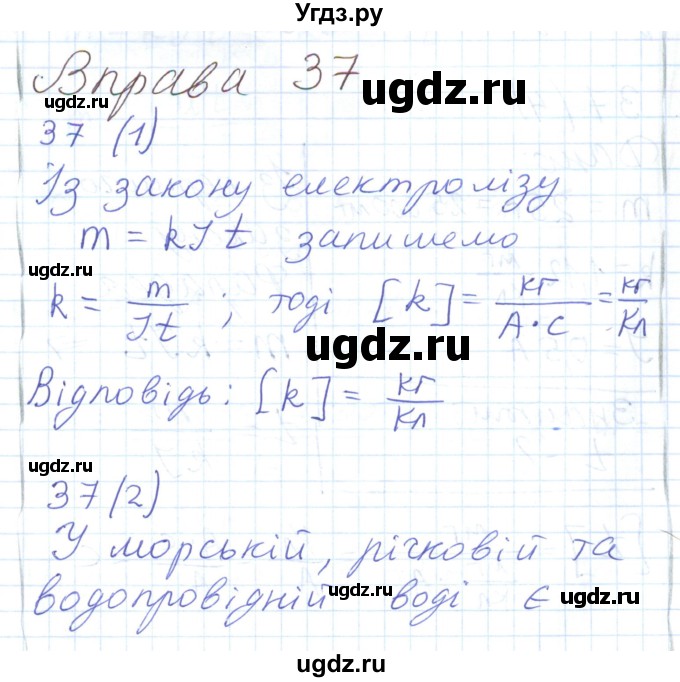 Угдз.ру
Вправа 37
ugdz.ru
ugdz.ru
37 (1)
Із закону електролізу
m = kIt запишемо
ugdz.ru
k = m/I.t ; тоді [k] = кг/А·С = кг/Кл
ugdz.ru
Відповідь: [k] = кг/Кл
ugdz.ru
37(2)
ugdz.ru
У морській, річковій та
водопровідній воді є
ugdz.ru
ugdz.ru